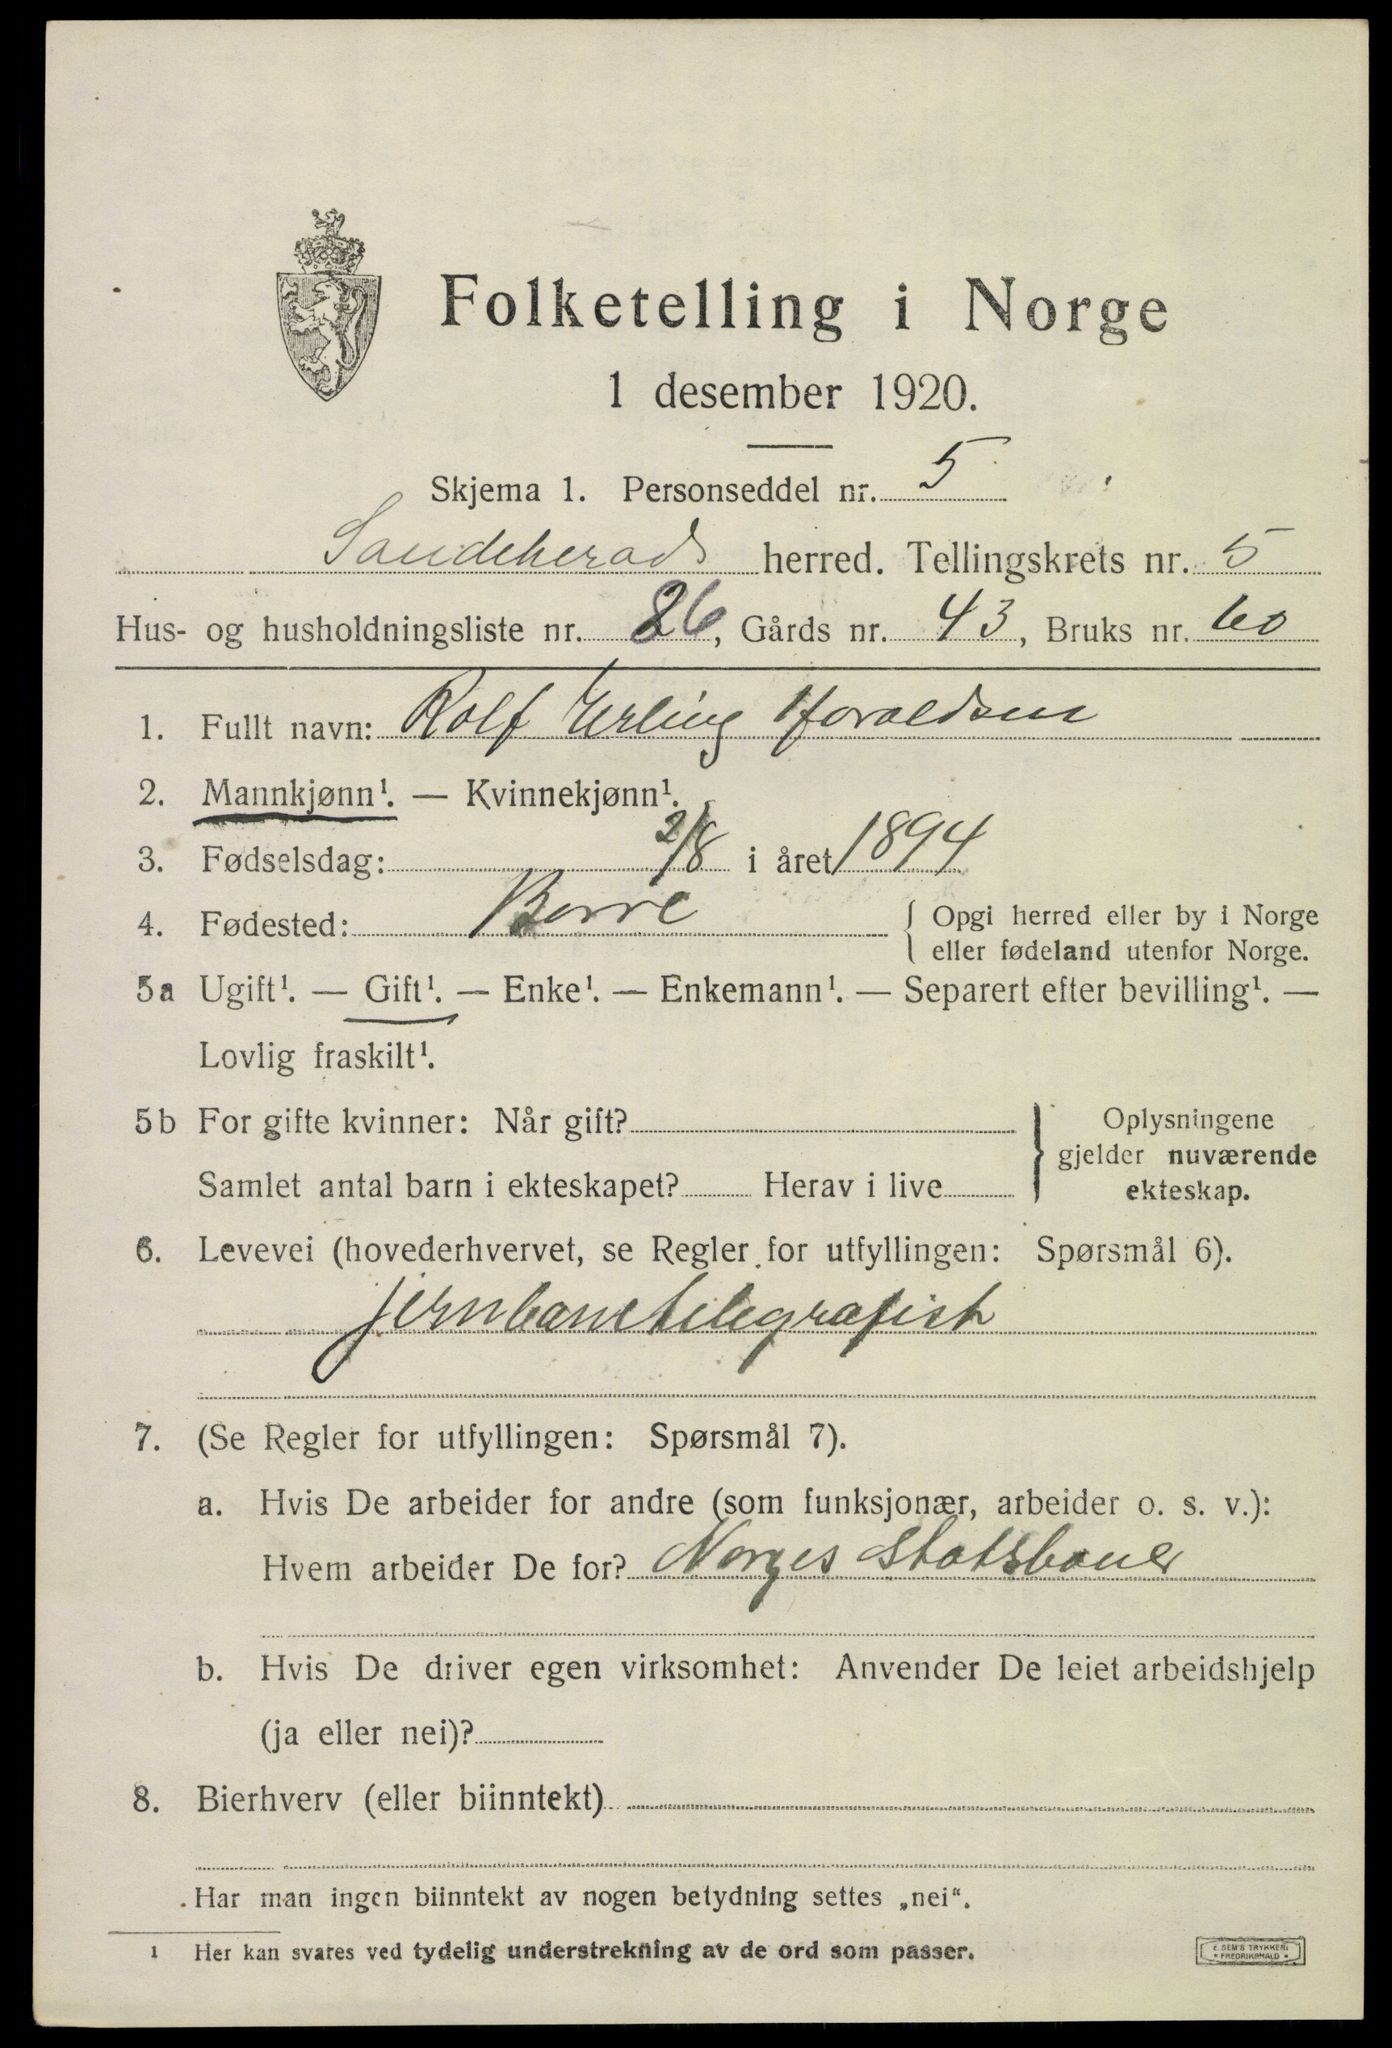 Folketelling i Norge
1 desember 1920.
Skjema 1. Personseddel nr. 5
Sandeherads herred. Tellingskrets nr. 5
Hus- og husholdningsliste nr. 26, Gårds nr. 43, Bruks nr. 60
1. Fullt navn: Rolf Erling Haraldsen
2. Mannkjønn¹. — Kvinnekjønn¹.
3. Fødselsdag: 2/8 i året 1894
4. Fødested: Borre { Opgi herred eller by i Norge
eller fødeland utenfor Norge.
5a Ugift¹. — Gift¹. — Enke¹. — Enkemann¹. — Separert efter bevilling¹. —
Lovlig fraskilt¹.
5b For gifte kvinner: Når gift? } Oplysningene
gjelder nuværende
Samlet antal barn i ekteskapet? Herav i live ekteskap.
6. Levevei (hovederhvervet, se Regler for utfyllingen: Spørsmål 6).
jernbanetelegrafist
7. (Se Regler for utfyllingen: Spørsmål 7).
a. Hvis De arbeider for andre (som funksjonær, arbeider o. s. v.):
Hvem arbeider De for? Norges Statsbaner
b. Hvis De driver egen virksomhet: Anvender De leiet arbeidshjelp
(ja eller nei)?
8. Bierhverv (eller biinntekt)
Har man ingen biinntekt av nogen betydning settes „nei“.
1 Her kan svares ved tydelig understrekning av de ord som passer.
E. SEM'S TRYKKERI
* FREDRIKSHALD *